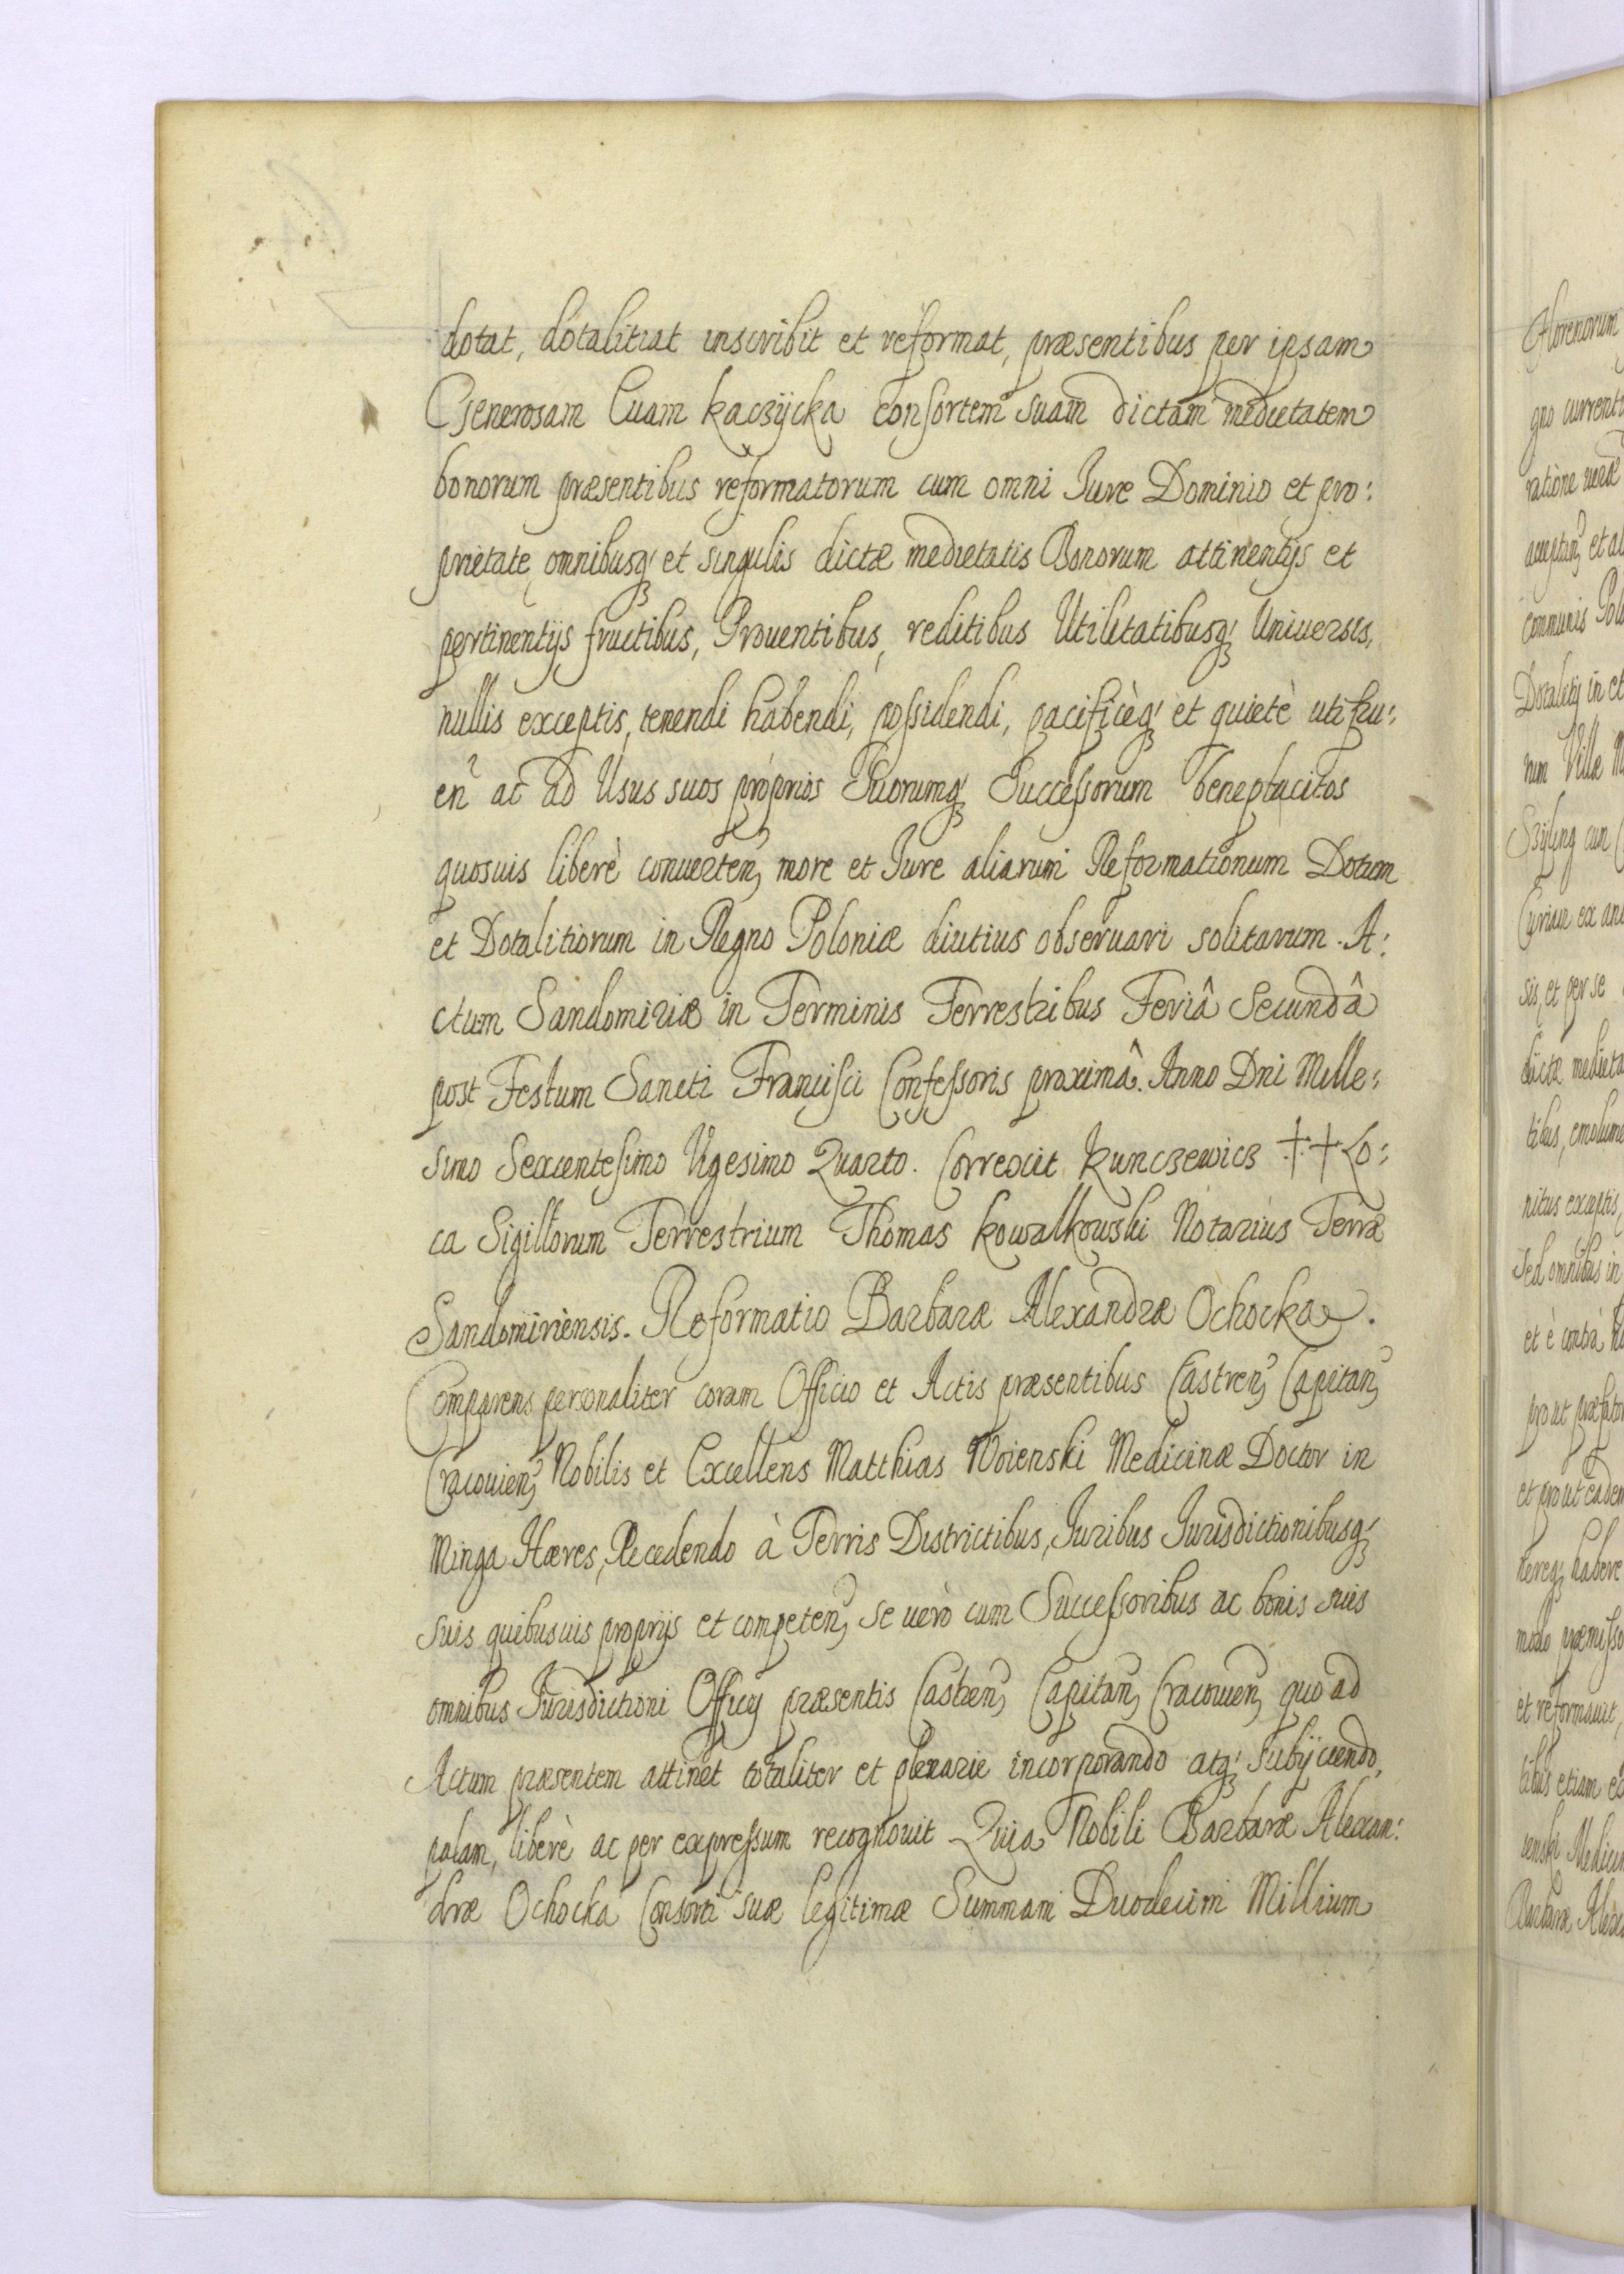 dotat, dotalitiat inscribit et reformat, præsentibus per ipsam
Generosam Euam Kaczÿcka Consortem suam dictam medietatem
bonorum præsentibus reformatorum cum omni Jure Dominio et pro:
prietate omnibusq́ et singulis dictæ medietatis Bonorum attinentijs et
pertinentijs fructibus, Prouentibus, reditibus Utilitatibusq́ Uniuersis,
nullis exceptis, tenendi habendi, possidendi, pacificèq́ et quietè utifru:
en̄ ac ad Usus suos proprios Suorumq́ Successorum beneplacitos
quosuis liberè conuerten, more et Jure aliarum Reformationum Dotum
et Dotalitiorum in Regno Poloniæ diutius obseruari solitarum. A:
ctum Sandomiriæ in Terminis Terrestribus Feriâ Secundâ
post Festum Sancti Francisci Confessoris proximâ. Anno Dni Mille:
simo Sexcentesimo Vigesimo Quarto. Correxit Kunczewicz ++ Lo:
ca Sigillorum Terrestrium Thomas Kowalkowski Notarius Terræ
Sandomiriensis. Reformatio Barbaræ Alexandræ Ochocka.
Comparens personaliter coram Officio et Actis præsentibus Castren, Capitan,
Cracouien, Nobilis et Excellens Matthias Woienski Medicinæ Doctor in
Minga Hæres, Recedendo à Terris Districtibus, Juribus Jurisdictionibusq́
suis quibusuis proprijs et competen, se uerò cum Successoribus ac bonis suis
omnibus Jurisdictioni Officij præsentis Castren, Capitan, Cracouien, quo ad
Actum præsentem attinet totaliter et plenarie incorporando atq́ subijciendo,
palam, liberè ac per expressum recognouit Quia Nobili Barbaræ Alexan:
dræ Ochocka Consorti suæ legitimæ Summam Duodecim Millium